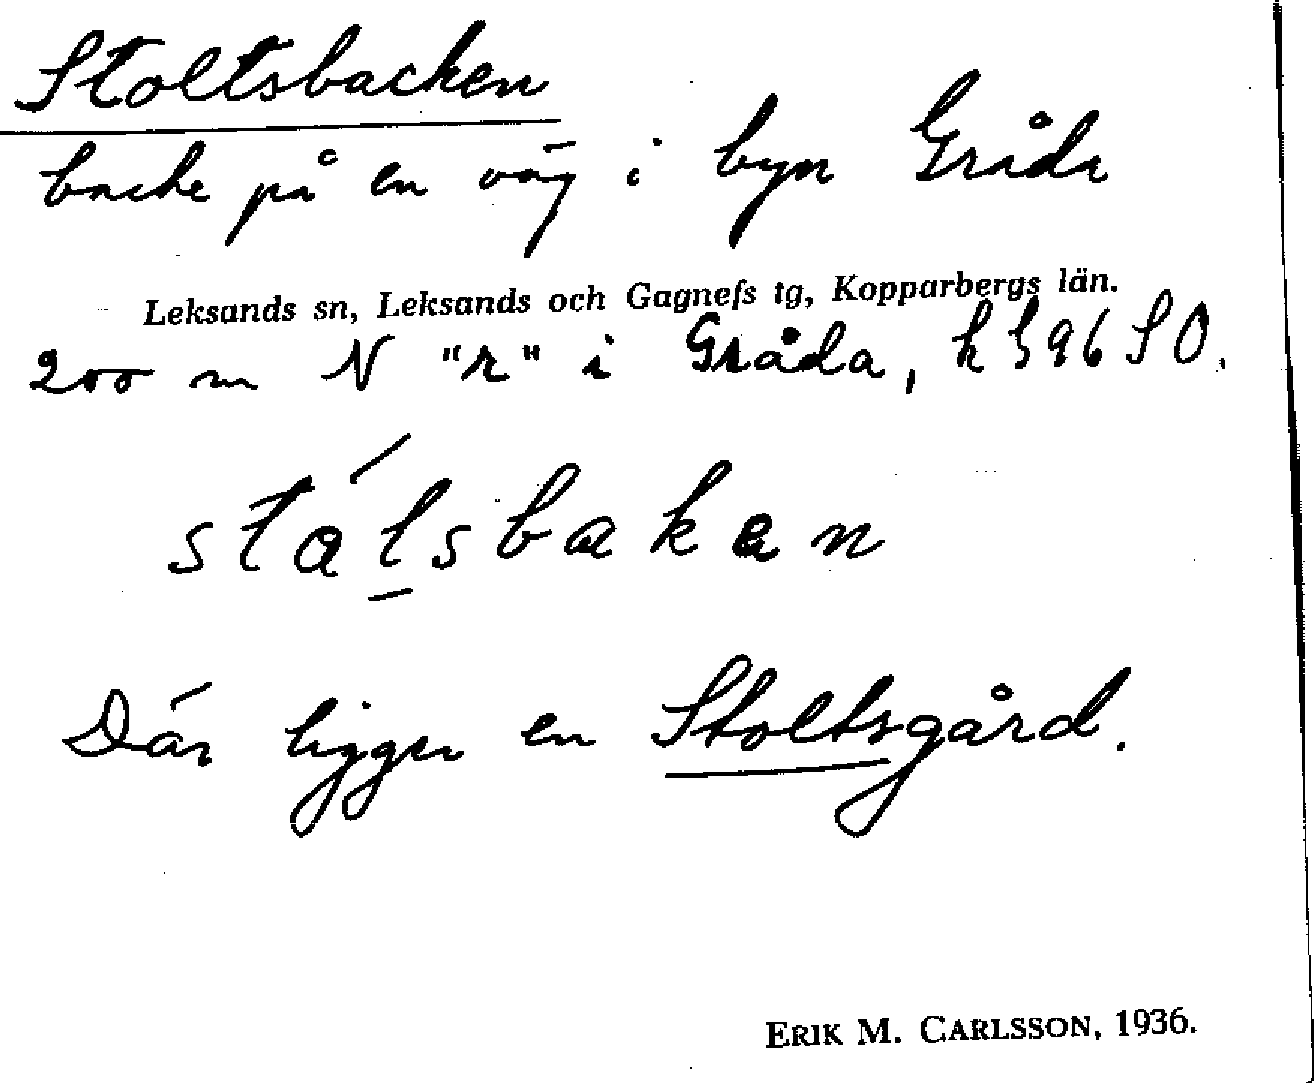 Stoltsbacken
backe på en väg i byn Gråda
Leksands sn, Leksands och Gagnefs tg, Kopparbergs län.
200 m N "r" i Gråda, k 396 SO.
stálsbakan
Där ligger en Stoltsgård.
ERIK M. CARLSSON, 1936.